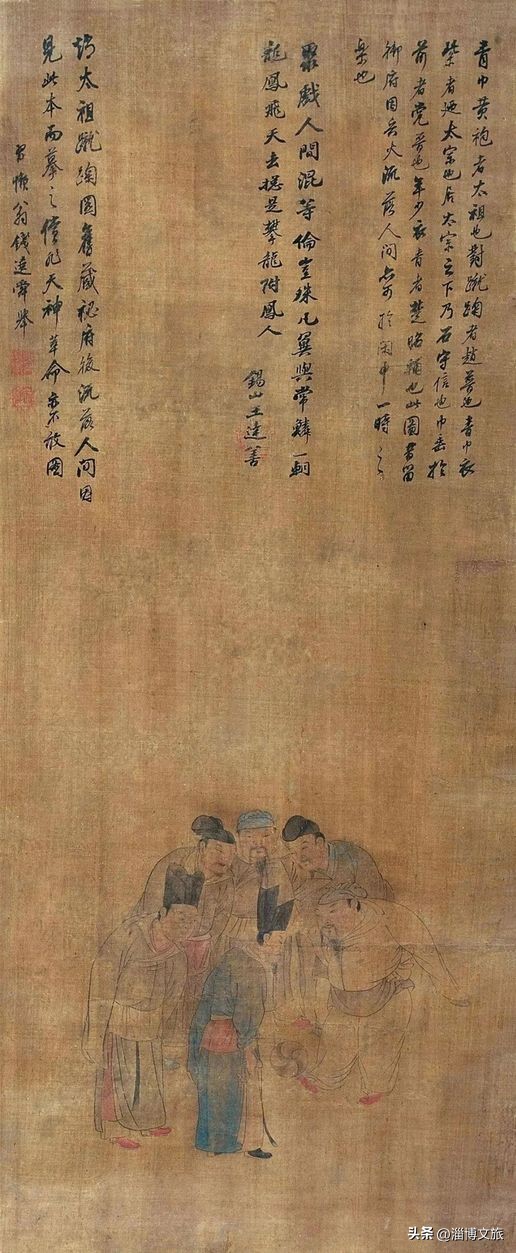 青巾黄袍者太祖也對蹴踘者趙普也青巾衣
紫者廼太宗也居太宗之下乃石守信也巾垂於
前者党晉也年少衣青者楚昭輔也此圖留
御府因兵火流落人間亦可於閑中一時之
樂也
聚戲人間混等倫豈殊凡翼與常鱗一朝
龍鳳飛天去總是攀龍附鳳人
錫山王達善
太祖蹴踘圖舊藏秘府後流落人間因
見此本而摹之儻非天神革命亦不敢圖
習懶翁錢選舜舉
头条 @淄博文旅